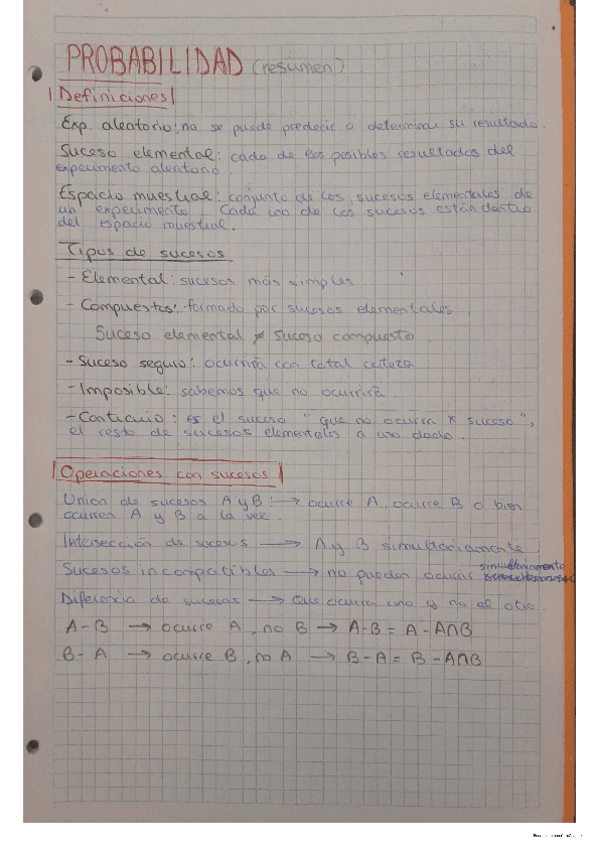 PROBABILIDAD (resumen)
Definiciones
Exp. aleatorio: no se puede predecir o determinar su resultado.
Suceso elemental: cada de los posibles resultados del
experimento aleatorio.
Espacio muestral: conjunto de los sucesos elementales de
un experimento. Cada uno de los sucesos están dentro
del espacio muestral.
Tipos de sucesos
- Elemental: sucesos más simples.
- Compuestos: formado por sucesos elementales.
Suceso elemental ≠ Suceso compuesto
- Suceso seguro: ocurrirá con total certeza
- Imposible: sabemos que no ocurrirá.
- Contrario: es el suceso "que no ocurra x suceso",
el resto de sucesos elementales a uno dado.
Operaciones con sucesos
Union de sucesos A y B: → ocurre A, ocurre B o bien
ocurren A y B a la vez.
Intersección de sucesos → A y B simultaniamente
Sucesos incompatibles → no pueden ocurrir simultaniamente
Diferencia de sucesos → Que ocurra uno y no el otro.
A-B → ocurre A, no B → A-B = A - A∩B
B-A → ocurre B, no A → B-A = B - A∩B